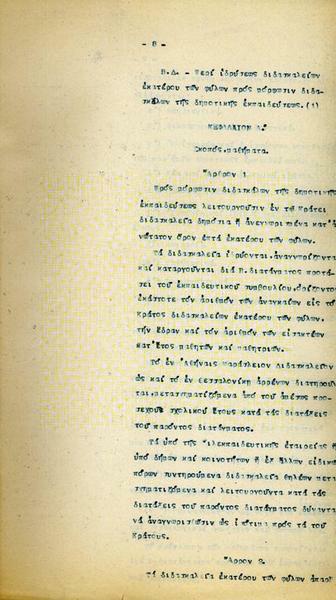 - 8 -
Β.Δ. - Περί ἱδρύσεως διδασκαλείων
ἑκατέρου τῶν φύλων πρός μόρφωσιν διδα-
σκάλων τῆς δημοτικῆς ἐκπαιδεύσεως.(1)
ΚΕΦΑΛΑΙΟΝ Α'
Σκοπός, μαθήματα.
Ἄρθρον 1.
Πρός μόρφωσιν διδασκάλων τῆς δημοτικῆς
ἐκπαιδεύσεως λειτουργοῦσιν ἐν τῷ Κράτει
διδασκαλεῖα δημόσια ἤ ἀνεγνωρισμένα κατ'ἀ-
νώτατον ὅρον ἑπτά ἑκατέρου τῶν φύλων.
Τά διδασκαλεῖα ἱδρύονται, ἀναγνωρίζονται
καί καταργοῦνται διά Β. διατάγματος προτά-
σει τοῦ ἐκπαιδευτικοῦ συμβουλίου, ὁρίζοντος
ἑκάστοτε τόν ἀριθμόν τῶν ἀναγκαίων εἰς τό
Κράτος διδασκαλείων ἑκατέρου τῶν φύλων,
τήν ἕδραν καί τόν ἀριθμόν τῶν εἰσακτέων
κατ'ἔτος μαθητῶν καί μαθητριῶν.
Τό ἐν Ἀθήναις Μαράσλειον Διδασκαλεῖον
ὡς καί τό ἐν Θεσσαλονίκῃ ἀρρένων διατηροῦν-
ται, μετασχηματιζόμενα ἀπό τοῦ ἀμέσως
προσεχοῦς σχολικοῦ ἔτους κατά τάς διατάξεις
τοῦ παρόντος διατάγματος.
Τά ὑπό τῆς Φιλεκπαιδευτικῆς ἑταιρείας ἤ
ὑπό δήμων καί κοινοτήτων ἤ ἐξ ἄλλων εἰδικῶν
πόρων συντηρούμενα διδασκαλεῖα θηλέων μετα-
σχηματιζόμενα καί λειτουργοῦντα κατά τάς
διατάξεις τοῦ παρόντος διατάγματος δύνανται
νά ἀναγνωρισθῶσιν ὡς ἰσότιμα πρός τά τοῦ
Κράτους.
Ἄρθρον 2.
Τά διδασκαλεῖα ἑκατέρου τῶν φύλων